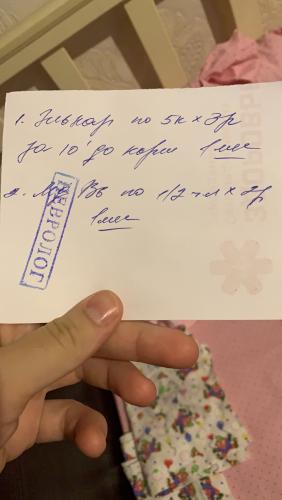 1. Элькар по 5к х 3р
за 10' до корм 1 мес
2. Mg B6 по 1/2 ч.л х 2р
1 мес
НЕВРОЛОГ